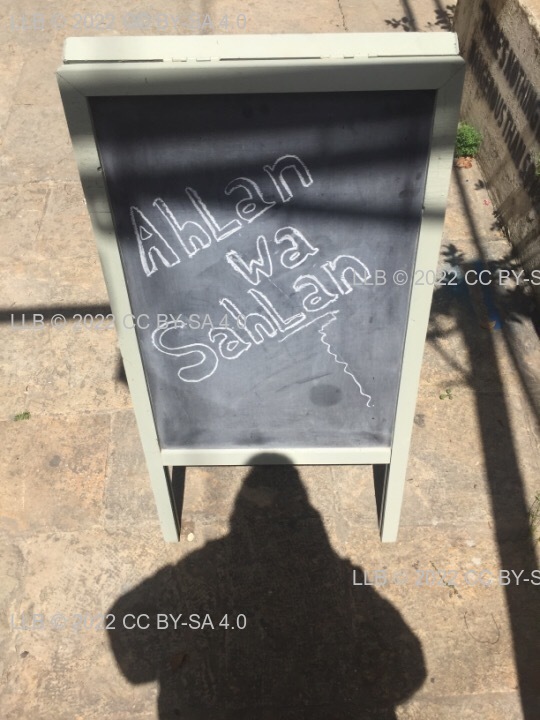 LLB © 2022 CC BY-SA 4.0
AhLan
wa
SahLan
LLB © 2022 CC BY-S
LLB © 2022 CC BY-SA 4.0
LLB © 2022 CC BY-S
LLB © 2022 CC BY-SA 4.0